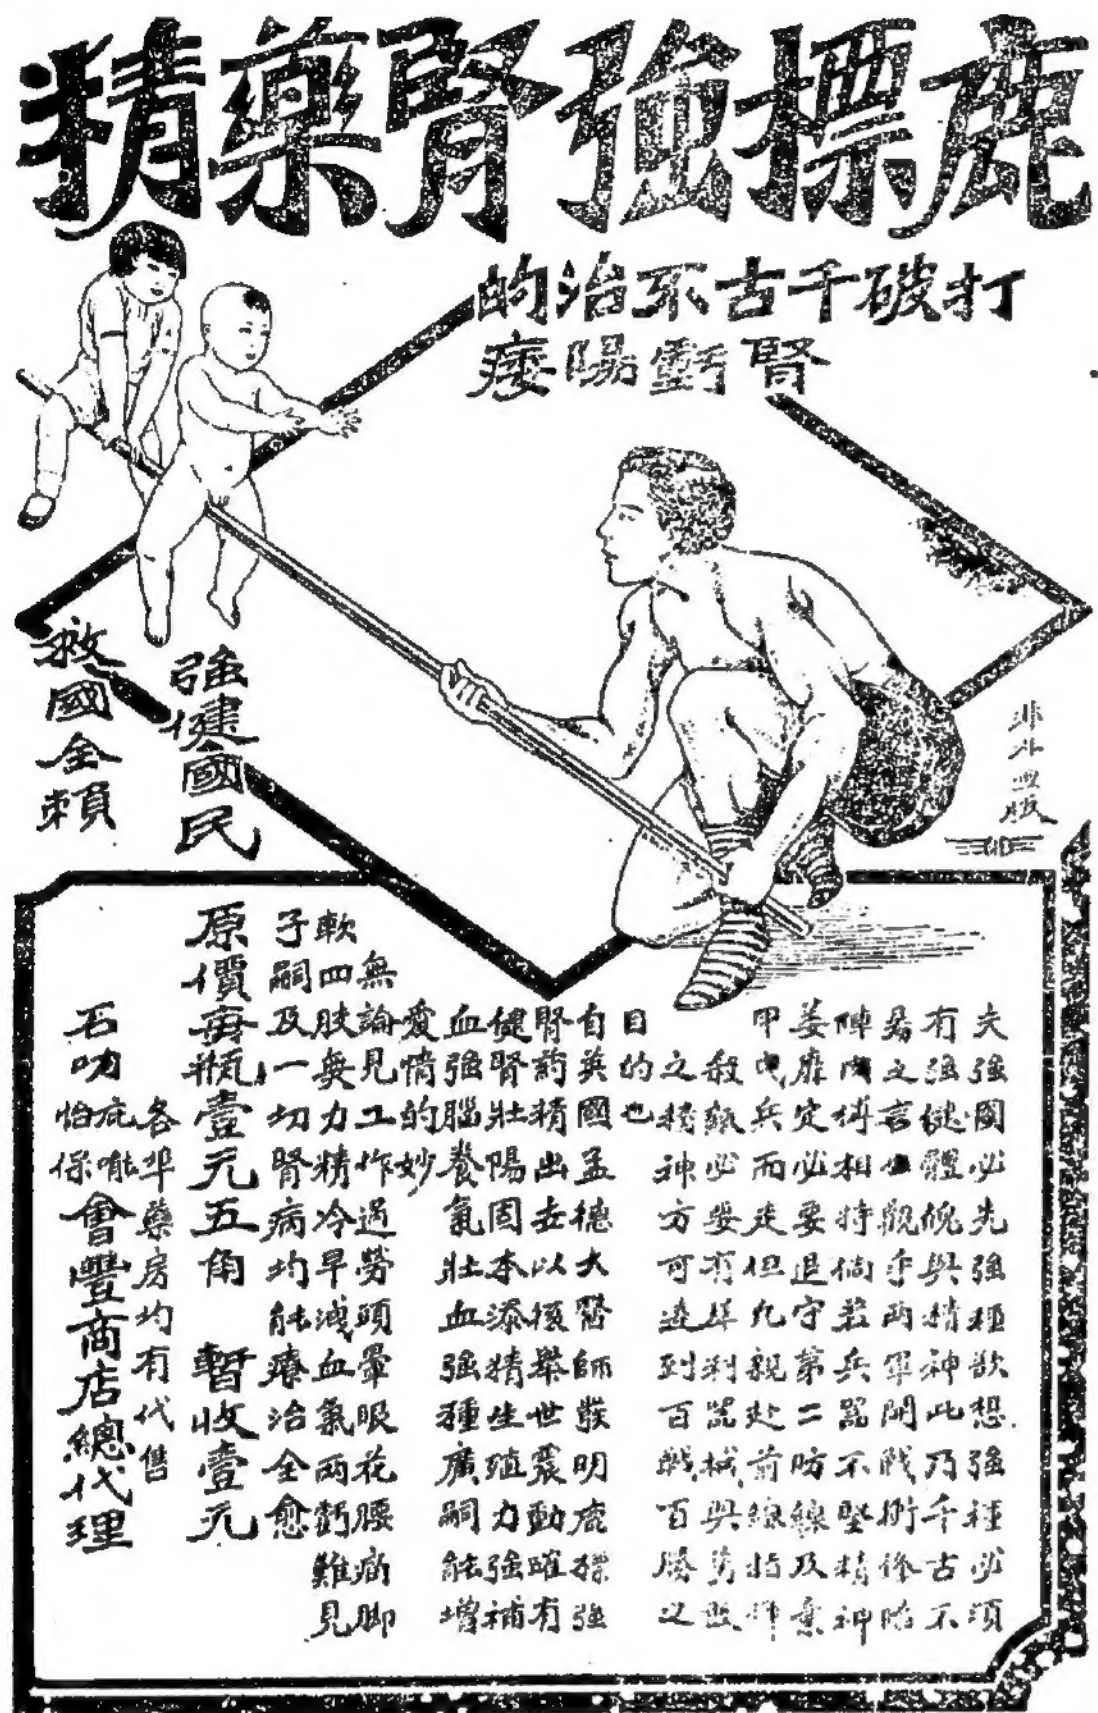 鹿標強腎藥精
打破千古不治的
腎虧陽痿
強健國民
救國全賴
夫強國必先強種欲想強種必須
有強健體魄與精神此乃千古不
易之言也觀乎兩軍開戰衝鋒陷
陣肉搏相持倘若兵器不堅精神
萎靡定必要退守第二防線及棄
甲曳兵而走但凡親赴前線指揮
殺敵必要有犀利器械與勇敢
之精神方可達到百戰百勝之
目的也
自英國孟德大醫師發明鹿標強
腎藥精出去以後舉世震動確有
健腎壯陽固本添精生殖力強補
血強腦養氣壯血強種廣嗣能增
愛情的妙
無論見工作過勞頭暈眼花腰痛脚
軟四肢無力精冷早洩血氣兩虧難見
子嗣及一切腎病均能療治全愈
原價每瓶壹元五角 暫收壹元
各埠藥房均有代售
石叻庇能怡保會豐商店總代理